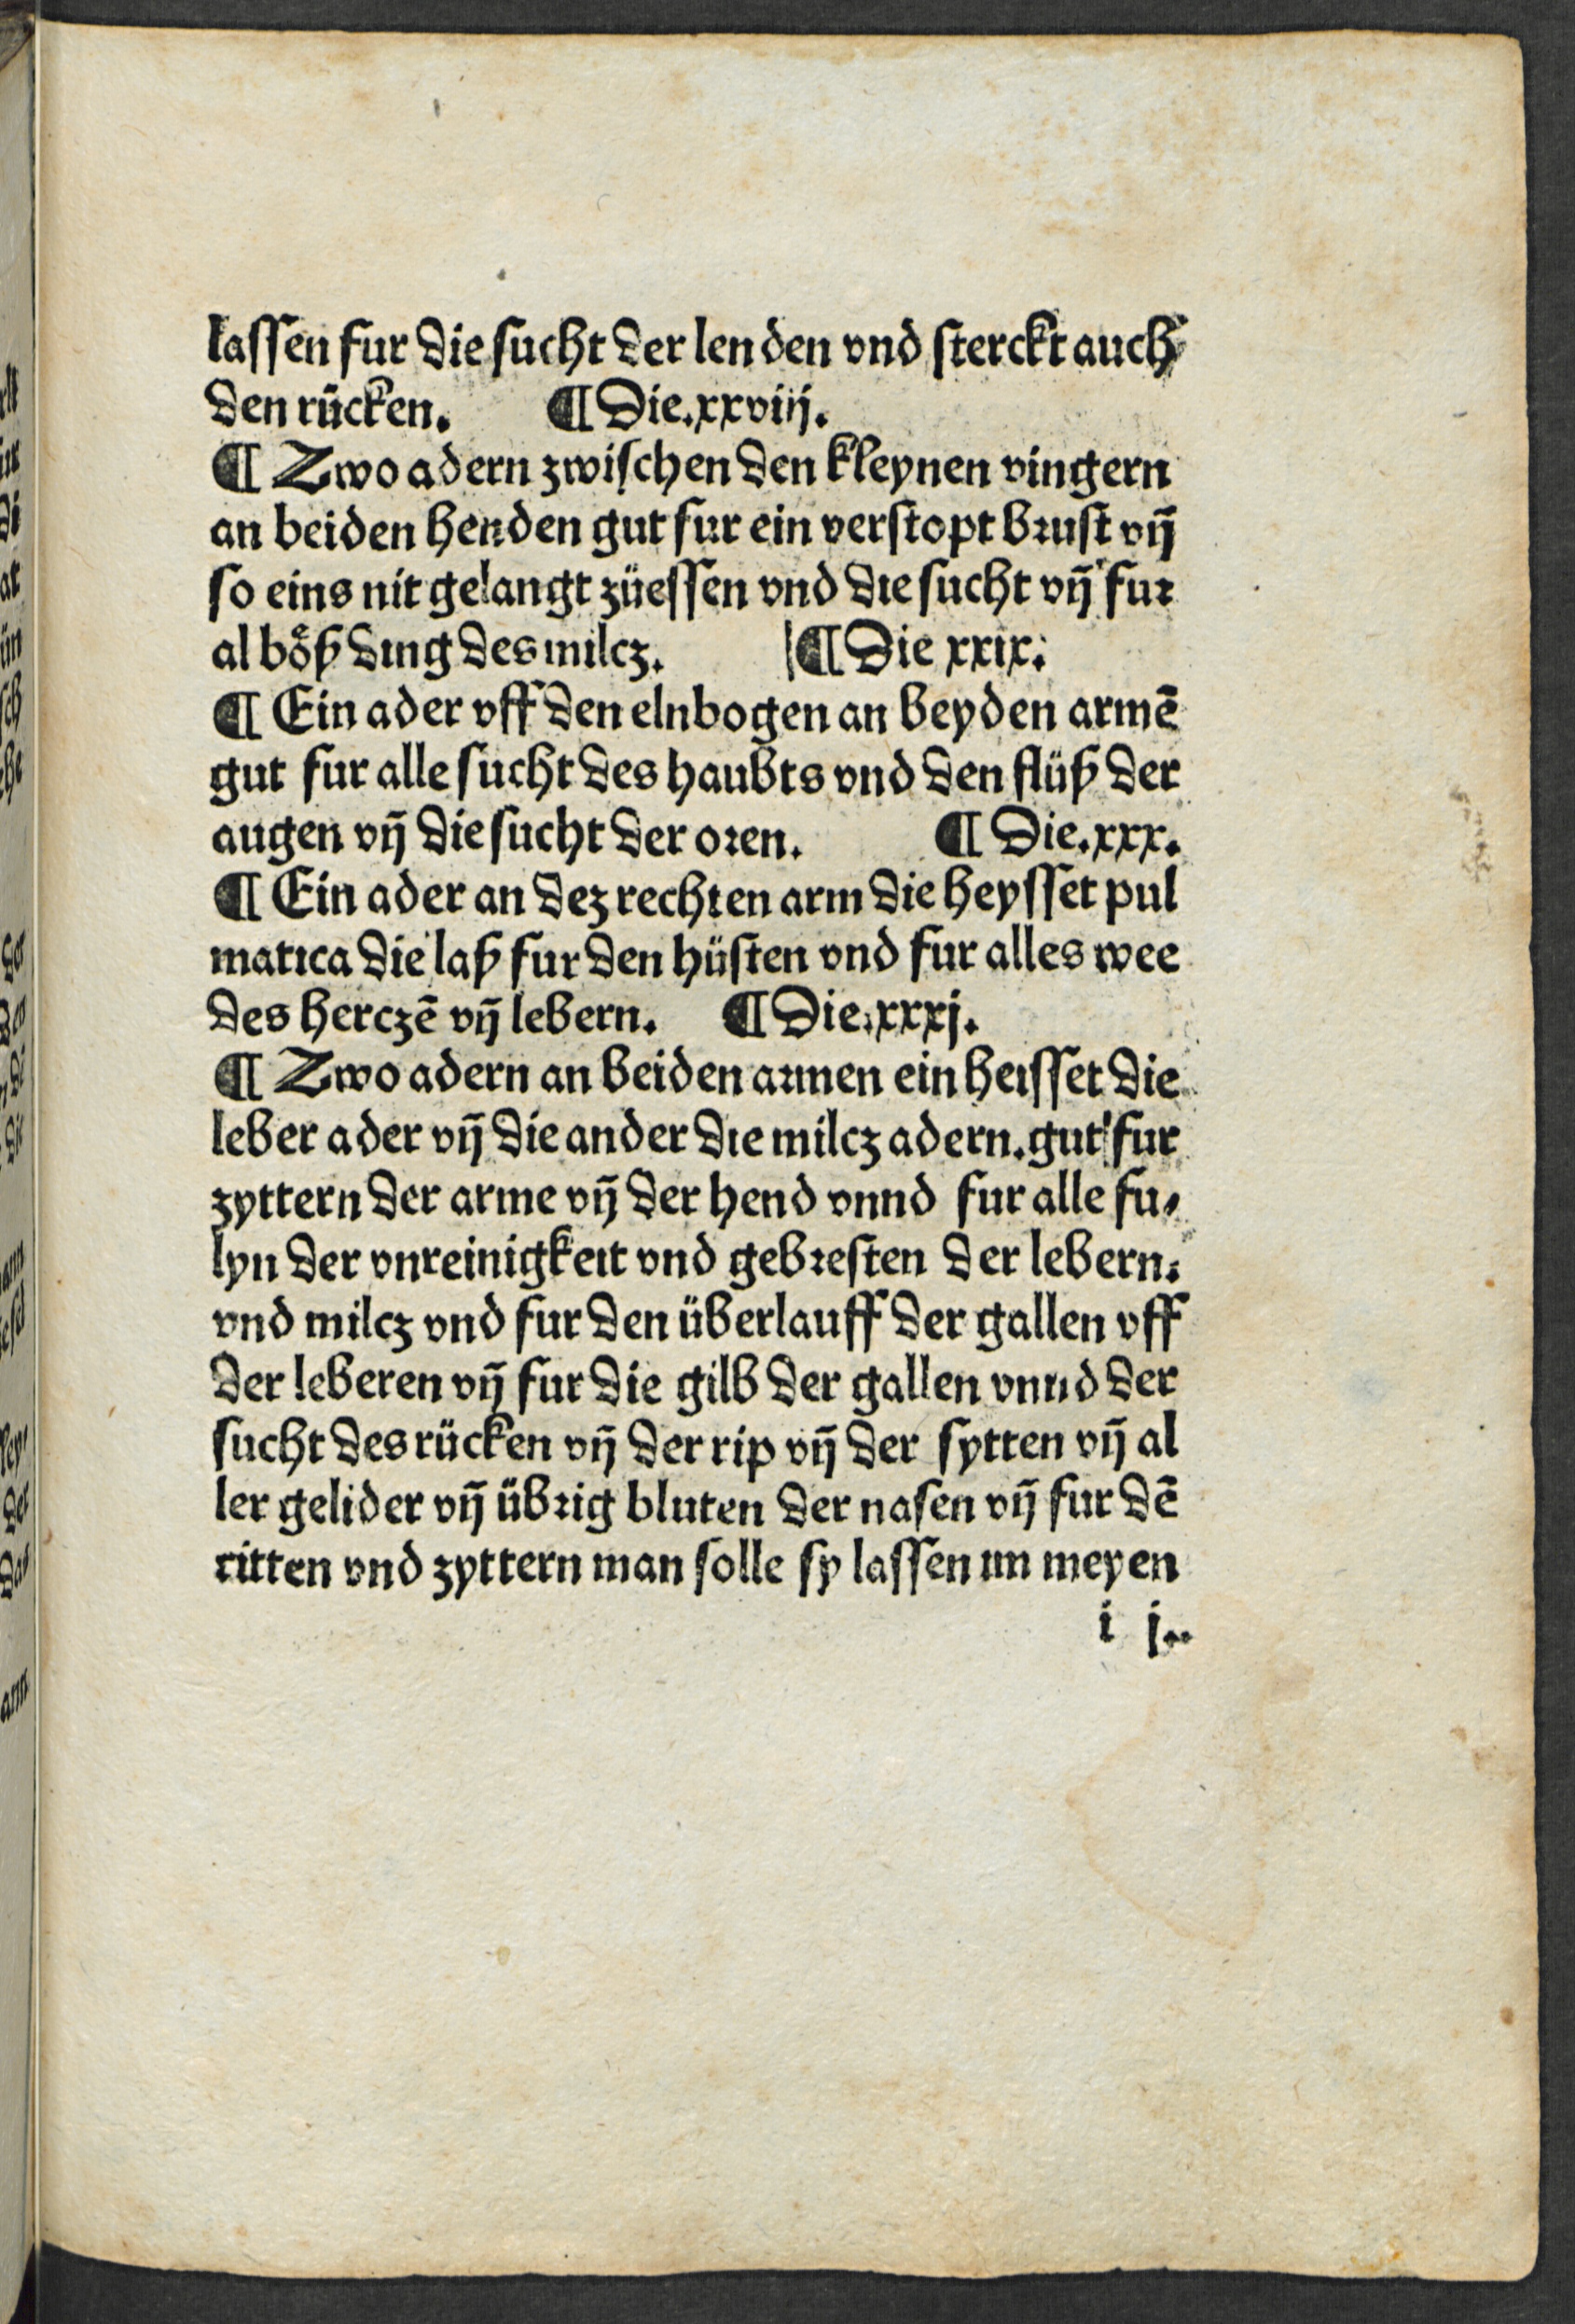 lassen fur die sucht der lenden vnd sterckt auch
den rücken. ¶ Die.xxviij.
¶ Zwo adern zwischen den kleynen vingern
an beiden henden gut fur ein verstopt brust vñ
so eins nit gelangt züessen vnd die sucht vñ fur
al bo&#x364;ß ding des milcz. ¶ Die xxix.
¶ Ein ader vff den elnbogen an beyden armē
gut fur alle sucht des haubts vnd den flüß der
augen vñ die sucht der oren. ¶ Die.xxx.
¶ Ein ader an dez rechten arm die heysset pul
matica die laß fur den hüsten vnd fur alles wee
des herczē vñ lebern. ¶ Die.xxxj.
¶ Zwo adern an beiden armen ein heisset die
leber ader vñ die ander die milcz adern.gut fur
zyttern der arme vñ der hend vnnd fur alle fu⸗
lyn der vnreinigkeit vnd gebresten der lebern.
vnd milcz vnd fur den überlauff der gallen vff
der leberen vñ fur die gilb der gallen vnnd der
sucht des rücken vñ der rip vñ der sytten vñ al
ler gelider vñ übrig bluten der nasen vñ fur dē
ritten vnd zyttern man solle sy lassen im meyen
i j..